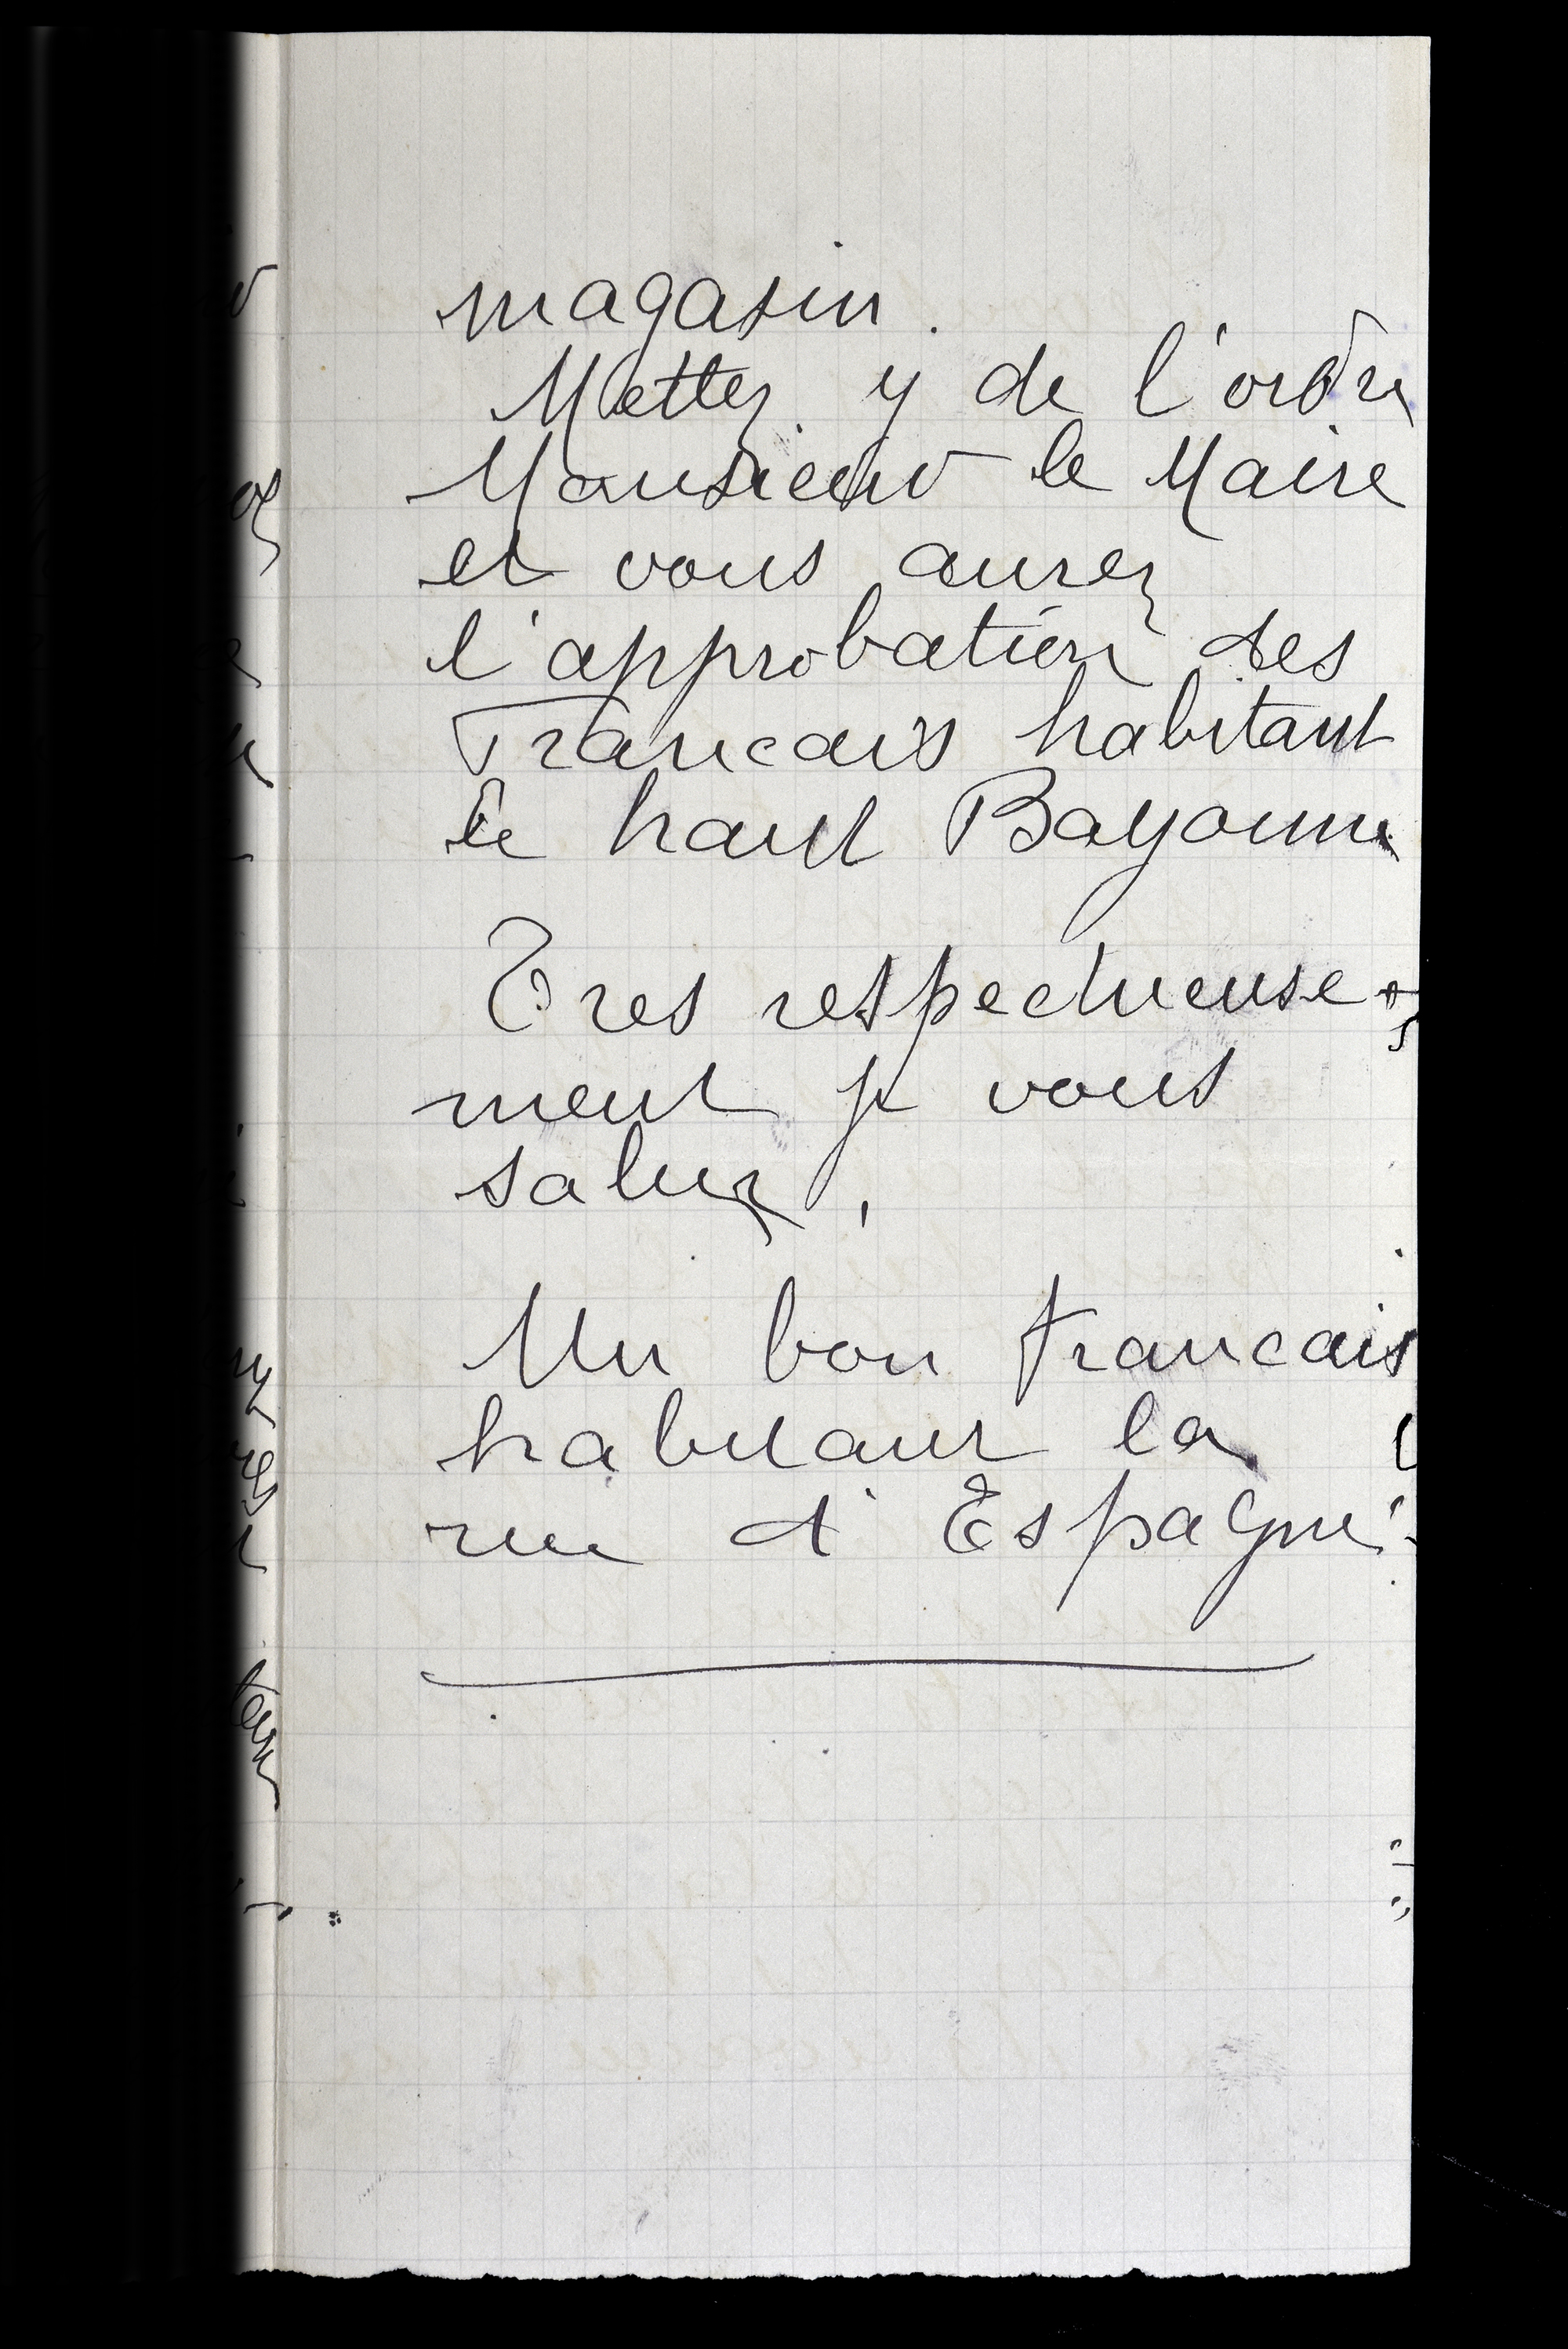 magasin.
Mettez y de l'ordre
Monsieur le Maire
et vous aurez
l'approbation des
Francais habitant
le haut Bayonne
Tres respectueuse-
ment je vous
salue,
Un bon francais
habitant la
rue d'Espagne.